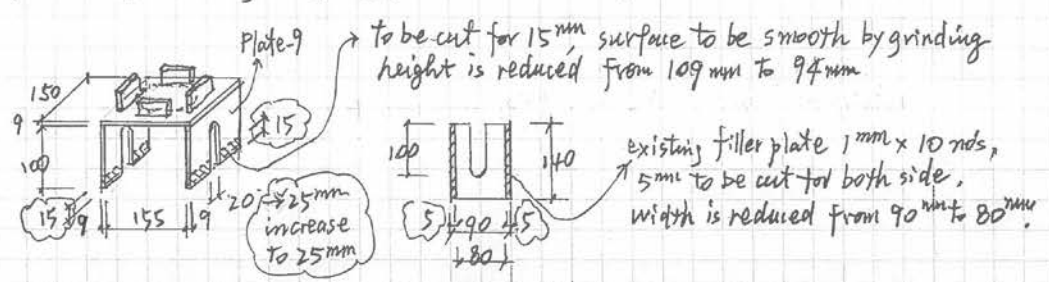 Plate-9
to be cut for 15mm, surface to be smooth by grinding
height is reduced from 109mm to 94mm
150
9
100
15
15
9
155
9
20 → 25mm
increase
to 25mm
100
140
5
90
5
80
existing filler plate 1mm x 10 nos,
5mm to be cut for both side.
width is reduced from 90mm to 80mm.